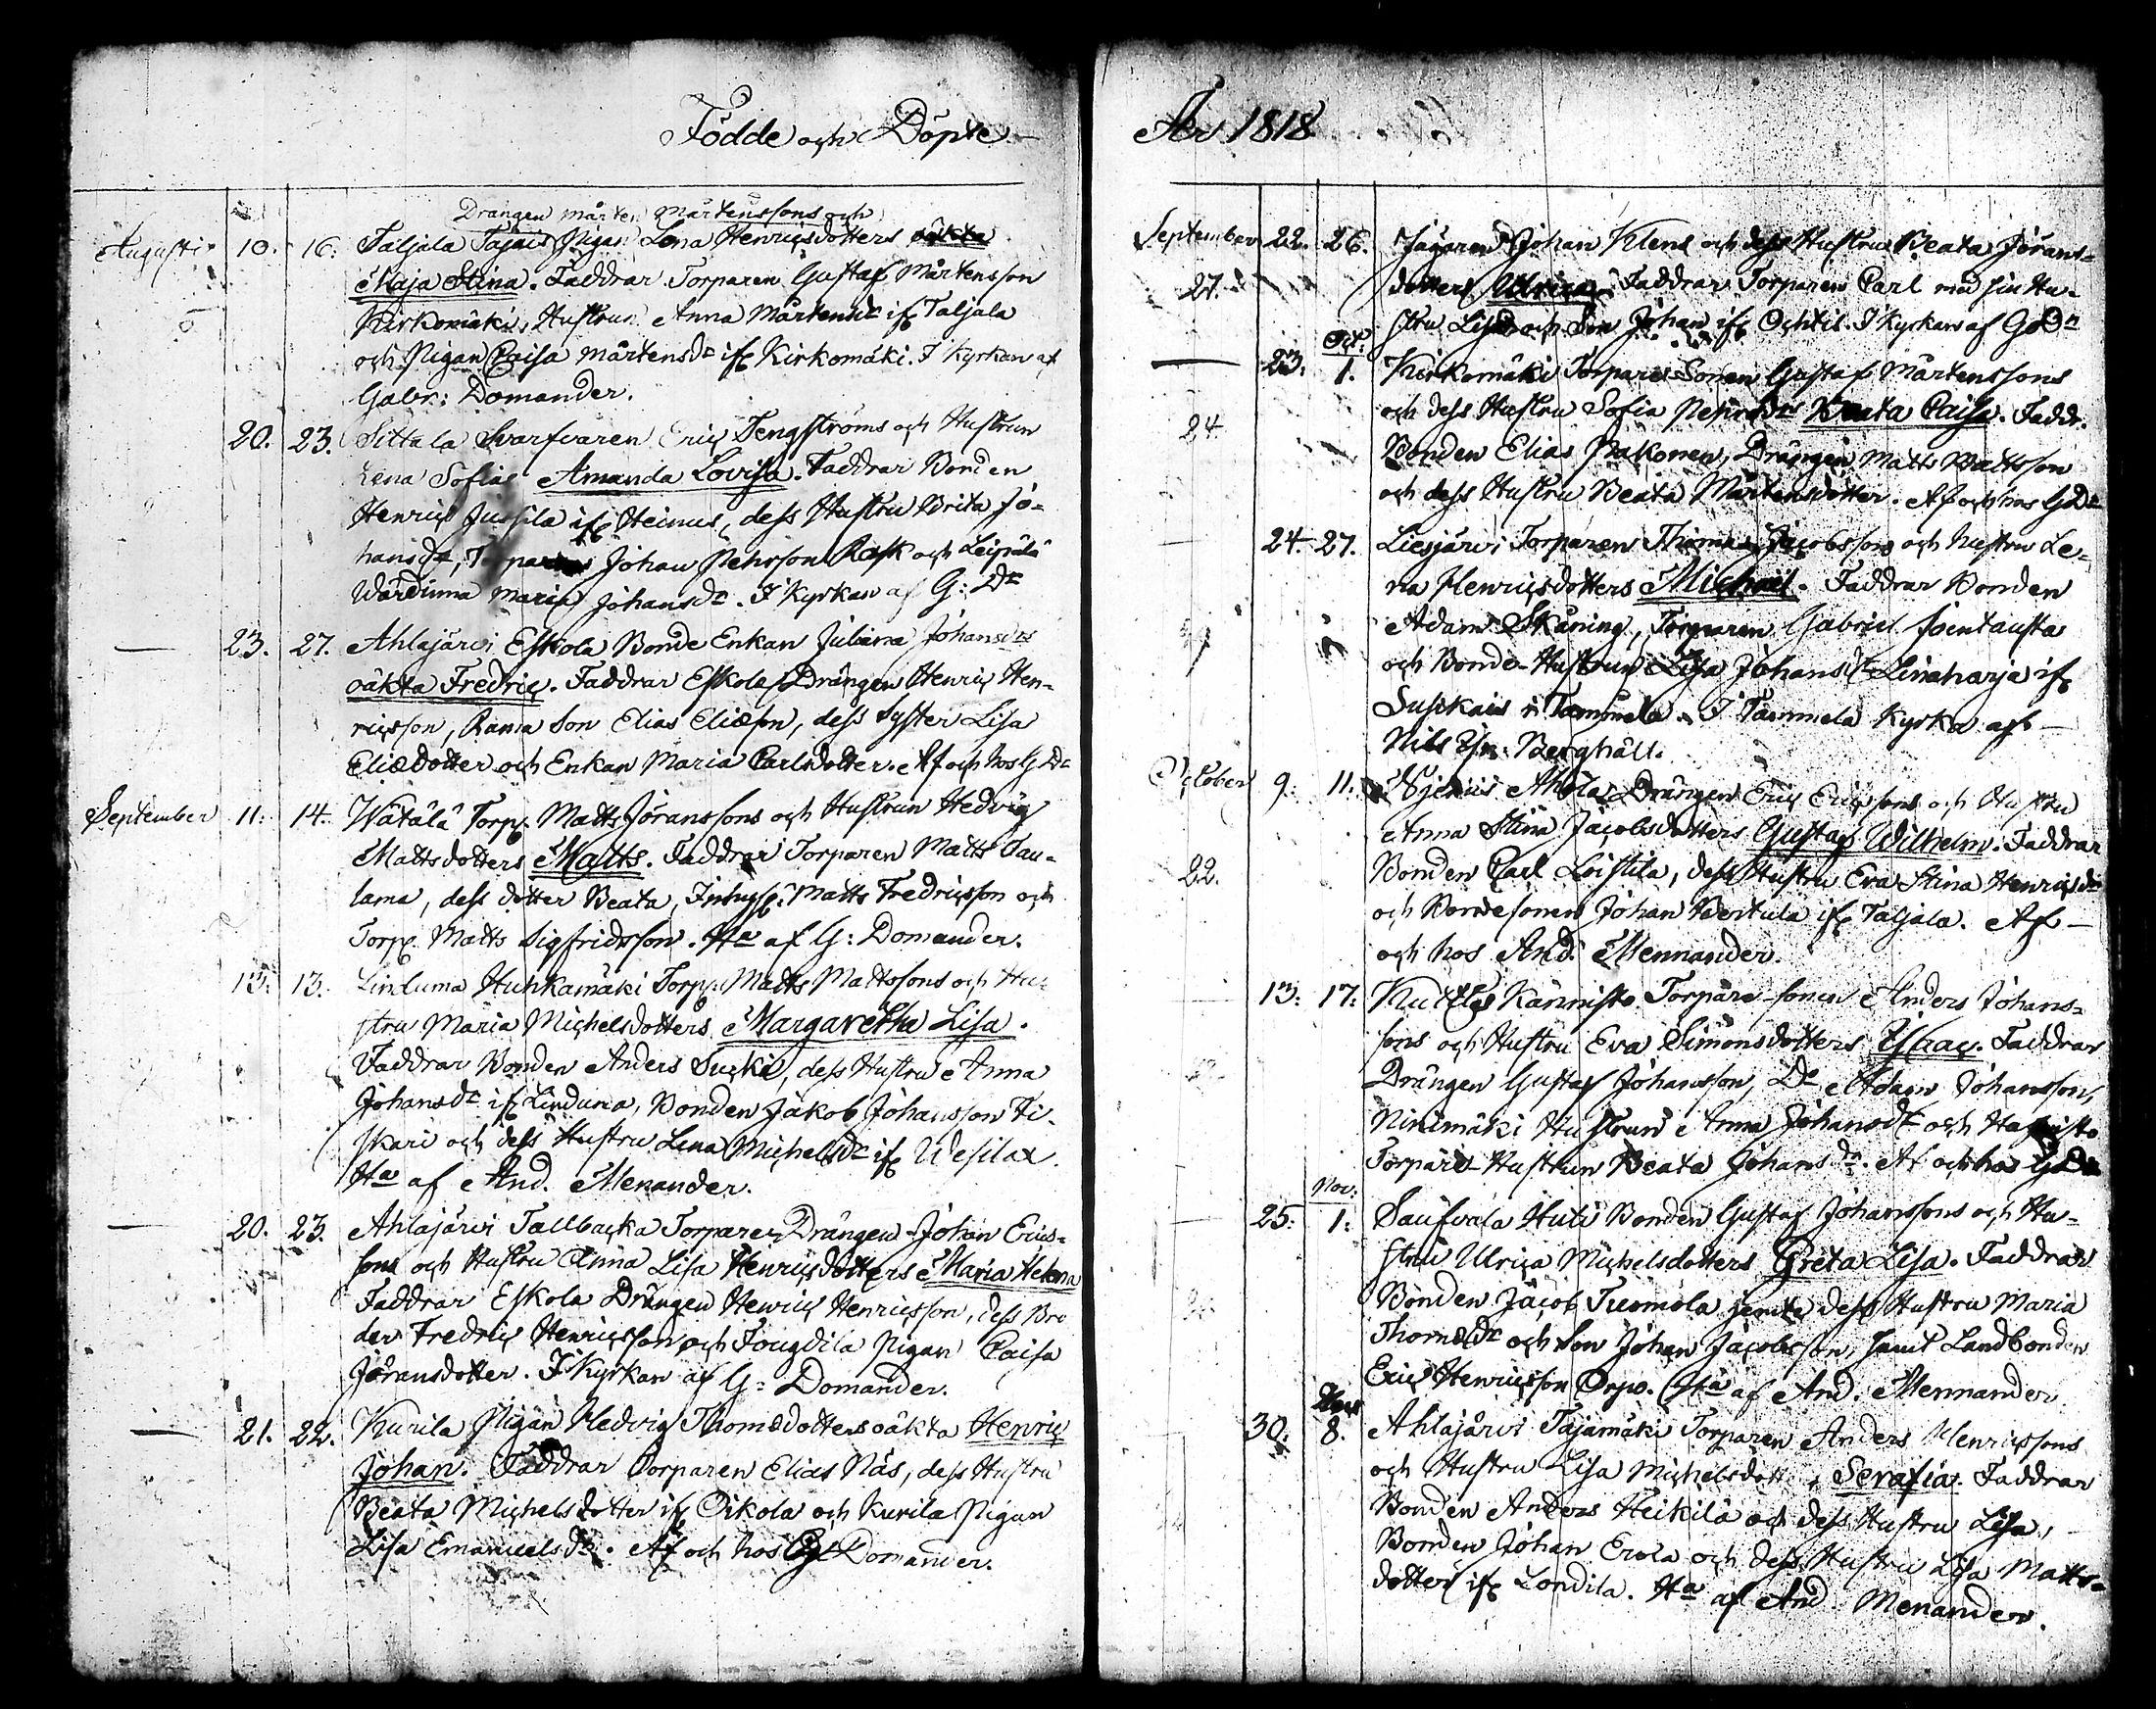 Födde och Döpte
Drängen Mårten Mårtenssons och
Augusti 10. 16. Taljala Tajais Pigan Lena Henricsdotters oäkta
Maja Stina. Faddrar Torparen Gustaf Mårtensson
Kirkomäki, Hustrun Anna Mårtensdr ifr Taljala
och Pigan Caisa Mårtensdr ifr Kirkomäki. I Kyrkan af
Gabr: Domander.
20. 23. Sittala Svarfvaren Eric Tengströms och Hustrun
Lena Sofias Amanda Lovisa. Faddrar Bonden
Henric Jussila ifr Heinus, dess Hustru Brita Jo-
hansdr, Johan Pehrsson Rask och Leipälä
Wärdinna Maria Johansdr. I Kyrkan af G: Dr
— 23. 27. Ahlajärvi Eskola Bonde Enkan Juliana Johansdrs
oäkta Fredric. Faddrar Eskola Drängen Henric Hen-
ricsson, Rama Son Elias Eliæson, dess Syster Lisa
Eliædotter och Enkan Maria Carlsdotter. Af och hos G Dr
September 11. 14. Wätälä Torp. Matts Jöranssons och Hustrun Hedvig
Mattsdotters Matts. Faddrar Torparen Matts Tau-
lama, dess dotter Beata, Inhys. Matts Fredricsson och
Torp. Matts Sigfridsson. Ha af G: Domander.
13. 13. Linduma Huhkamäki Torp. Matts Mattssons och Hu-
stru Maria Michelsdotters Margaretha Lisa.
Faddrar Bonden Anders Sucki, dess Hustru Anna
Johansdr ifr Linduma, Bonden Jakob Johansson Fi-
skari och dess Hustru Lena Michelsdr ifr Wesilax.
Ha af And. Menander.
— 20. 23. Ahlajärvi Tallbacka Torpare Drängen Johan Erics-
sons och Hustru Anna Lisa Henricsdotters Maria Helena
Faddrar Eskola Drängen Henric Henricsson, dess Bro
der Fredric Henricsson och Fougdila Pigan Caisa
Jöransdotter. I Kyrkan af G: Domander.
— 21. 22. Kurila Pigan Hedvig Thomædotters oäkta Henric
Johan. Faddrar Torparen Elias Näs, dess Hustru
Beata Michelsdotter ifr Oikola och Kurila Pigan
Lisa Emanuelsdr. Af och hos G Domander.
År 1818
September 22. 26. Jägaren Johan Klens och dess Hustru Beata Jörans-
27. dotters Ulrica. Faddrar Torparen Carl med sin Hu-
stru Lisa och Son Johan ifr Ochtis. I Kyrkan af G Dr
Oct:
— 23. 1. Kirkomäki Torpare Sonen Gustaf Mårtenssons
24. och dess Hustru Sofia Pehrsdrs Beata Caisa. Faddr.
Bonden Elias Pakonen, Drängen Matts Mattsson
och dess Hustru Beata Mårtensdotter. Af och hos G Dr
24. 27. Liesjärvi Torparen Thomas Jacobssons och Hustru Le-
na Henricsdotters Michael. Faddrar Bonden
Adam Skäning, Torparen Gabriel Sointausta
och Bonde-Hustrun Lisa Johansdr Linaharja ifr
Susikais i Tammela. I Tammela Kyrka af
Nils Berghäll.
October 9. 11. Ahola Drängen Eric Ericssons och Hustru
Anna Stina Jacobsdotters Gustaf Wilhelm. Faddrar
22. Bonden Carl Loistila, dess Hustru Eva Stina Henricsdr
och Bondesonen Johan Bertula ifr Taljala. Af —
och hos And. Mennander.
13: 17: Kännisto Torpare-sonen Anders Johans-
sons och Hustru Eva Simonsdotters Isaac. Faddrar
Drängen Gustaf Johansson, Do Adam Johansson,
Ninimäki Hustrun Anna Johansdr och
Torpare-Hustrun Beata Johansdr. Af och hos G Dr
Nov:
25: 1: Saufvala Huti Bonden Gustaf Johanssons och Hu-
stru Ulrica Michelsdotters Greta Lisa. Faddrar
Bonden Jacob Tuomola jemte dess Hustru Maria
Thomædr och Son Johan Jacobsson, samt Landbonden
Eric Henricsson Orpo. Ha af And. Mennander
30. 8. Ahlajärvi Tajamäki Torparen Anders Henricssons
och Hustru Lisa Michelsdotters Serafia. Faddrar
Bonden Anders Heikilä och dess Hustru Lisa,
Bonden Johan Erola och dess Hustru Lisa Matts-
dotter ifr Londila. Ha af And Menander.